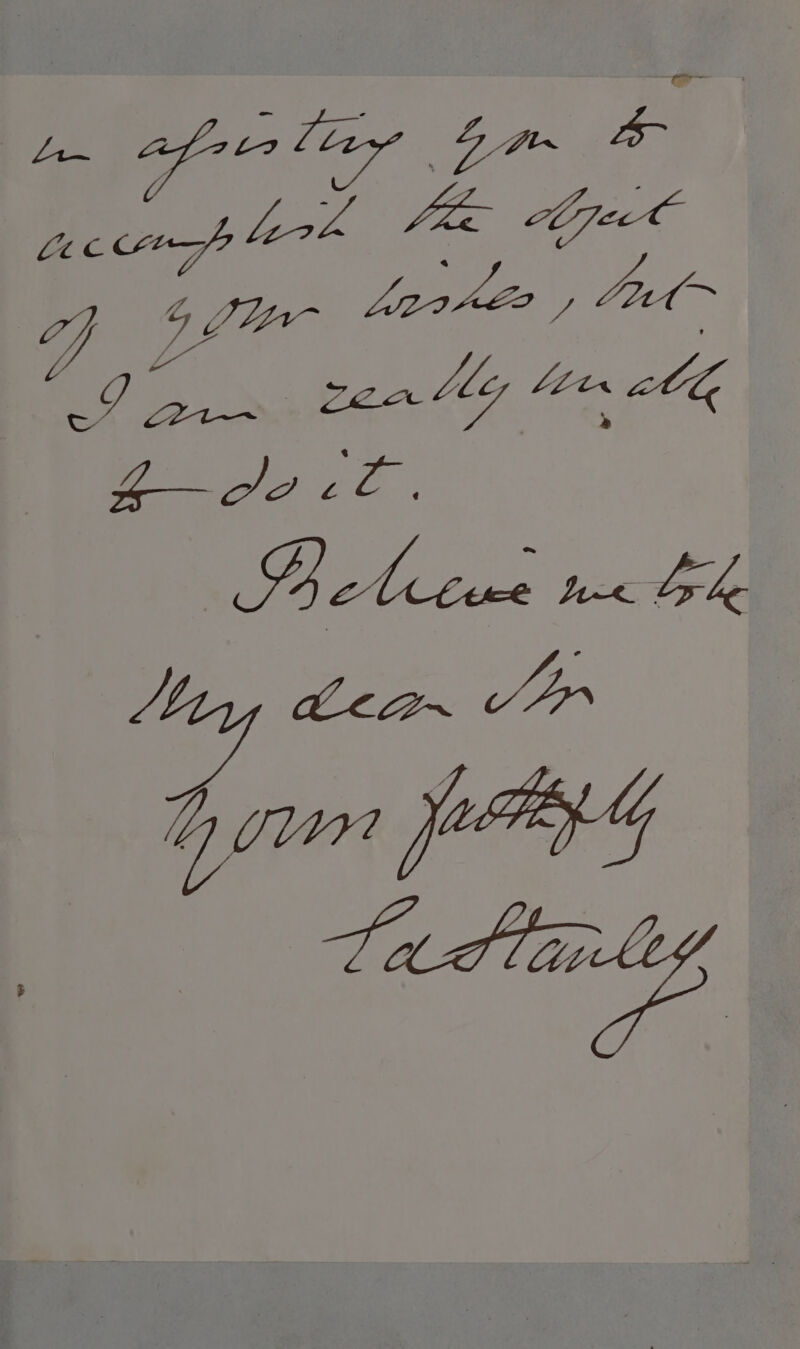 in assisting you to
accomplish the object
of your wishes, but
I am really unable
to do it.
Believe me to be
My dear Sir
Yours faithfully
Stanley